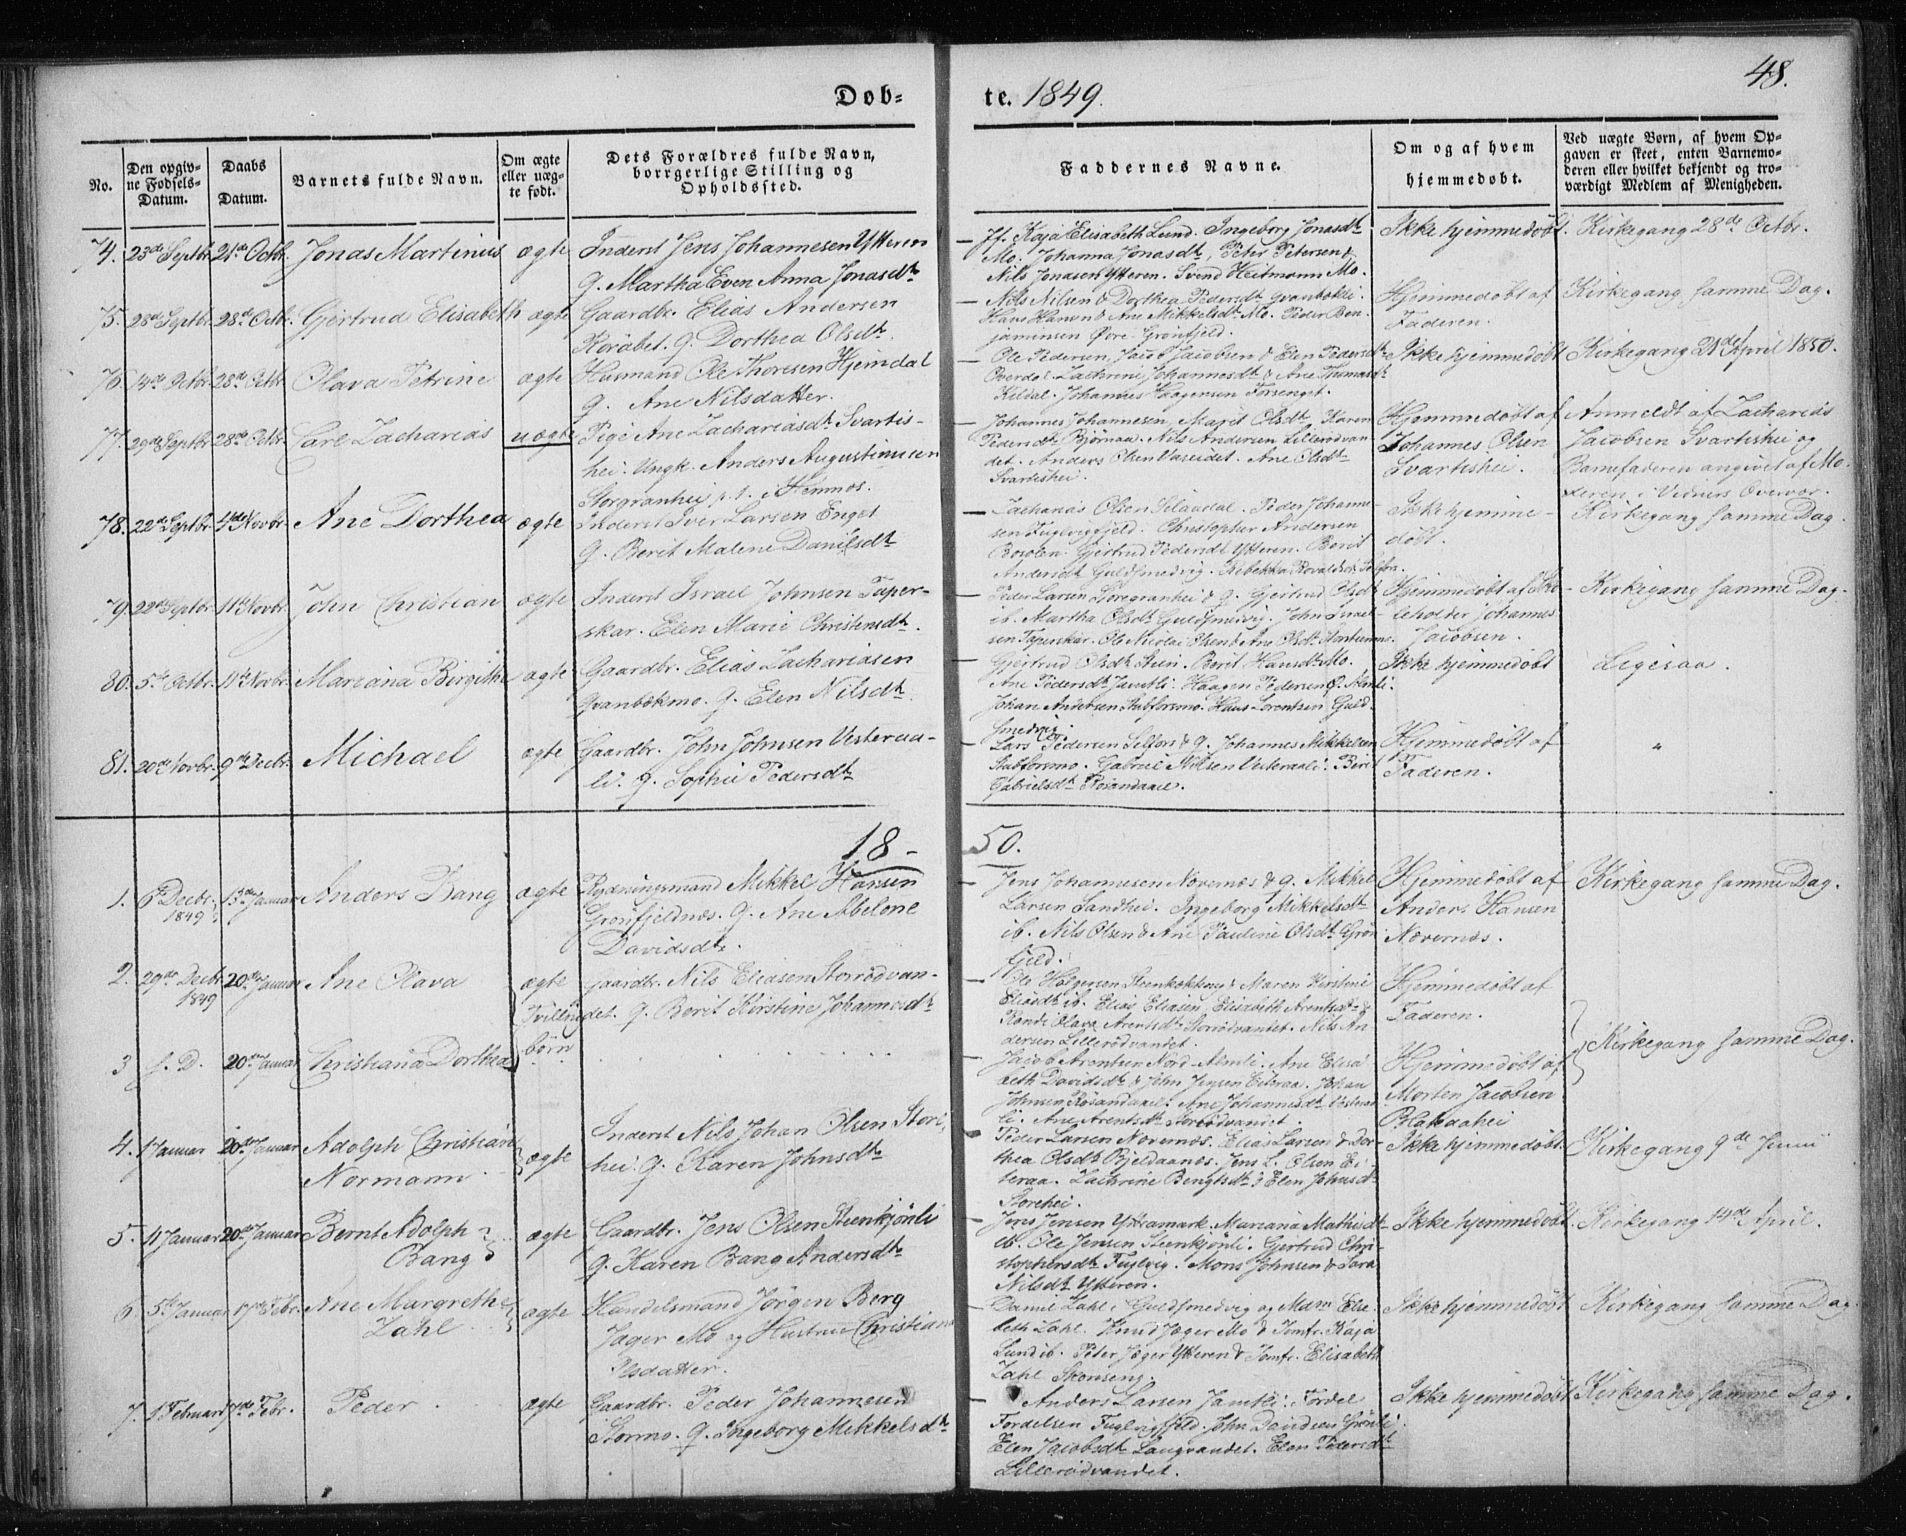 48.
Døb- te. 1849.
No.
Den opgiv-
ne Fødsels-
Datum.
Daabs
Datum.
Barnets fulde Navn.
Om ægte
eller uæg-
te født.
Dets Forældres fulde Navn,
borrgerlige Stilling og
Opholdssted.
Faddernes Navne.
Om og af hvem
hjemmedøbt.
Ved uægte Børn, af hvem Op-
gaven er skeet, enten Barnemo-
deren eller hvilket bekjendt og tro-
værdigt Medlem af Menigheden.
74. 23de Septbr. 21de Octbr. Jonas Martinus ægte
Inderst Jens Johannesen Ytteren
g. Martha Even Anna Jonasdt.
Jf. Kaja Elisabeth Lund. Ingeborg Jonasdt.
Mo. Johanna Jonasdt, Peter Petersen &
Nils Jonasen Ytteren. Svend Heitmann Mo.
Ikke hjemmedøbt. Kirkegang 28de Octbr.
75. 28de Septbr. 28de Octbr. Gjertrud Elisabeth ægte
Gaardbr. Elias Andersen
Røråbet. g. Dorthea Olsdt.
Nils Nilsen & Dorthea Pedersdt. Qvanbækli.
Hans Hansen & Ane Mikkelsdt. Mo. Peder Ben-
jaminsen Øvre Grønfjeld.
Hjemmedøbt af
Faderen.
Kirkegang samme Dag.
76. 14de Octbr. 28de Octbr. Olava Petrine ægte
Husmand Ole Thoresen Hjemdal
g. Ane Nilsdatter.
Ole Pedersen, Jacob Jacobsen & Elen Pedersdt.
Zachrine Johannesdt. & Ane Thomasdt.
Kildal. Johannes Haagensen Forsenget.
Ikke hjemmedøbt Kirkegang 21de April 1850.
77. 29de Septbr. 28de Octbr. Carl Zacharias uægte
Pige Ane Zachariasdt. Svartis-
hei. Ungk. Anders Augustinusen
Storgranhei p. t. i Hemnæs.
Johannes Johannesen, Marit Olsdt. Karen
Pedersdt. Bjørnaa. Nils Andersen Lillerødvan-
det. Anders Olsen Ane Olsdt.
Svartishei.
Hjemmedøbt af
Johannes Olsen
Svartishei.
Anmeldt af Zacharias
Jacobsen Svartishei og
Barnefaderen angivet af Mo-
deren i Vidners Overvær.
78. 22de Septbr. 4de Novbr. Ane Dorthea ægte
Inderst Iver Larsen Enget
g. Berit Malene Danielsdt.
Zacharias Olsen Peder Johanne-
sen Fuglvigfjeld. Christopher Andersen
Bosolen. Gjertrud Pedersdt. Ytteren. Berit
Andersdt. Guldsmedvig. Rebekka Selfors.
Ikke hjemme-
døbt.
Kirkegang samme Dag.
79. 22de Septbr. 11te Novbr. John Christian ægte
Inderst Israel Johnsen Taper-
skar. Elen Marie Christensdt.
Peder Larsen Storegranhei & g. Gjertrud Olsdt.
ib. Martha Olsdt. Guldsmedvig. John Israel-
sen Taperskar. Ole Nicolai Olsen & Ane Olsdt.
Hjemmedøbt af Sko-
leholder Johannes
Jacobsen.
Kirkegang samme Dag.
80. 5te Octbr. 11te Novbr. Mariana Birgithe ægte
Gaardbr. Elias Zachariasen
Qvanbækmo. g. Elen Nilsdt.
Gjertrud Olsdt. Steen. Berit Hansdt. Mo.
Ane Pedersdt. Jamtli. Haagen Pedersen
Johan Andersen Stubforsmo. Hans Lorentsen Guld-
smedvig.
Ikke hjemmedøbt Ligesaa.
81. 20de Novbr. 9de Decbr. Michael ægte
Gaardbr. John Johnsen Vesteraa-
li. g. Sophie Pedersdt.
Lars Pedersen Selfors & g. Johannes Mikkelsen
Stubforsmo. Gabriel Nilsen Vesteraali. Berit
Gabrielsdt. Røsandaael.
Hjemmedøbt af
Faderen.
"
18- 50.
1. 6 Decbr. 1849 13de Januar Anders Bang ægte
Rydningsmand Mikkel Hansen
Grønfjeldnæs. g. Ane Abelone
Davidsdt.
Jens Johannesen Nævernæs & g. Mikkel
Larsen Sandhei. Ingeborg Mikkelsdt.
ib. Nils Olsen & Ane Pauline Olsdt. Grøn-
fjeld.
Hjemmedøbt af
Anders Hansen
Nævernæs.
Kirkegang samme Dag.
2. 29de Decbr. 1849 20de Januar Ane Olava ægte
Tvilling
børn
Gaardbr. Nils Eliasen Storrødvan-
det. g. Berit Kirstine Johannesdt.
Ole Holgersen & Maren Kirstine
Eliasdt. ib. Elias Eliasen, Elisabeth Arentsdt. &
Randi Olava Arentsdt. Storrødvandet. Nils An-
dersen Lillerødvandet.
Hjemmedøbt af
Faderen.
3 s. D. 20de Januar Christiana Dorthea
Jacob Arentsen Nord-Almli. Ane Elisa-
beth Davidsdt. & John Jensen Eiteraa. Johan
Johnsen Røsandaael. Ane Johannesdt. Vesteraa-
li. Ane Arentsdt. Storrødvandet.
Hjemmedøbt af
Morten Jacobsen
Blakaahei
Kirkegang samme Dag.
4. 1 Januar 20de Januar Adolph Christian
Normann ægte
Inderst Nils Johan Olsen Stor-
hei. g. Karen Johnsdt.
Peder Larsen Nævernæs. Elias Larsen & Dor-
thea Olsdt. Bjeldaanæs. Jens L. Olsen Ei-
teraa. Zachrine Bengtsdt. & Elen Johnsdt.
Storehei.
Ikke hjemmedøbt. Kirkegang 9de Juni
5. 11 Januar 20de Januar Bernt Adolph
Bang ægte
Gaardbr. Jens Olsen Steenkjønli
g. Karen Bang Andersdt.
Jens Jensen Yttramark. Mariana Mathisdt.
ib. Ole Jensen Steenkjønli. Gjertrud Chri-
stophersdt. Fuglvig. Mons Johnsen & Sara
Nilsdt. Ytteren.
Ikke hjemmedøbt Kirkegang 14de April.
6. 5te Januar 17de Febr. Ane Margrethe
Zahl ægte
Handelsmand Jørgen Berg
Jager Mo og Hustrue Christiana
Olsdatter.
Daniel Zahl i Guldsmedvig og Mam. Elsa-
beth Zahl. Knud Jæger Mo & Jomfr. Kaja
Lund ib. Peter Jæger Ytteren & Jomfr. Elisabeth
Zahl Skonseng.
Ikke hjemmedøbt Kirkegang samme Dag
7. 1 Februar 17de Febr. Peder ægte
Gaardbr. Peder Johannesen
Stormo. g. Ingeborg Mikkelsdt.
Anders Larsen Jamtli. Fordel
Fordelsen Fuglvigfjeld. John Davidsen Grønli.
Elen Jacobsdt. Langvandet. Elen Pedersdt.
Lillerødvandet.
Ikke hjemmedøbt Kirkegang samme Dag.